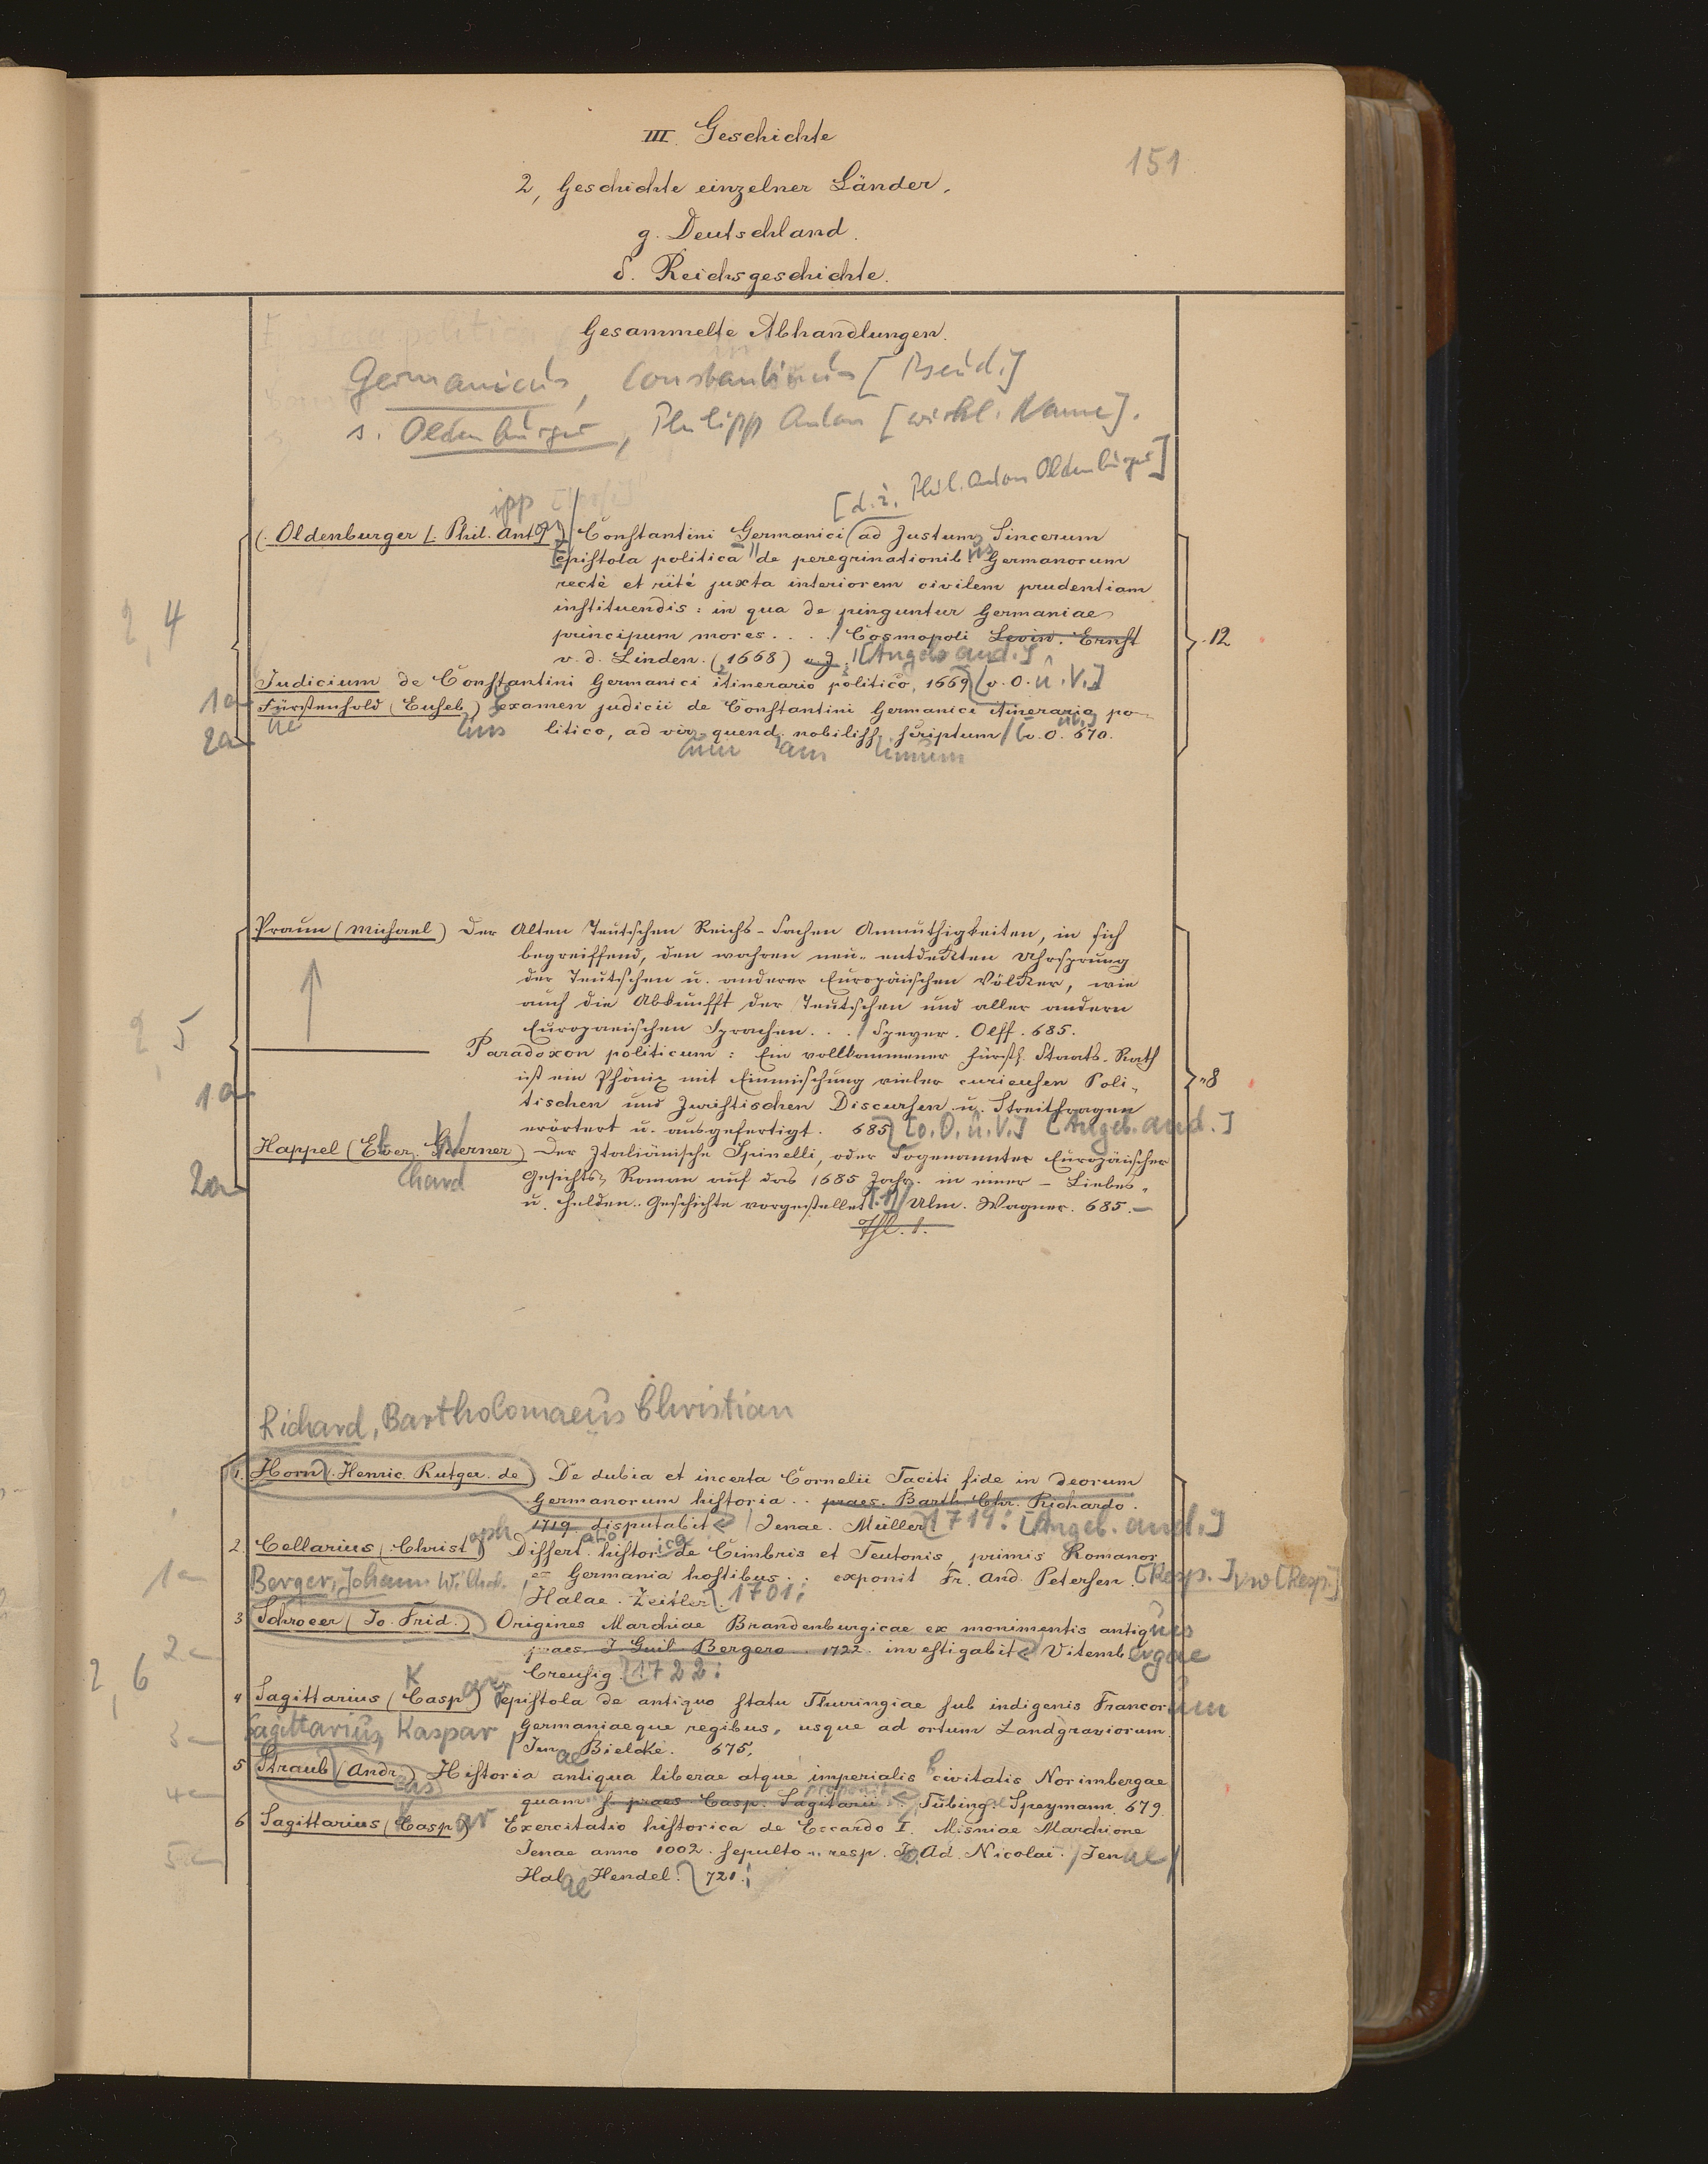 III. Geschichte
151
2, Geschichte einzelner Länder.
g. Deutschland.
δ. Reichsgeschichte.
Gesammelte Abhandlungen.
Germanicus, Constantinus [Pseud.]
s. Oldenburger, Philipp Anton [wirkl. Name].
[d. i. Phil. Anton Oldenburger]
ipp
(. Oldenburger [. Phil. Ant Constantini Germanici ad Justum Sincerum
epistola politica de peregrinationib. Germanorum
us
rectè et rité juxta interiorem civilem prudentiam
instituendis: in qua de pinguntur Germaniae
2, 4
principum mores . . . / Cosmopoli Levin. Ernst
12
v. d. Linden. (1668) [Angeb. and.]
Judicium de Constantini Germanici itinerario politico, 1669 [o. O. u. V.]
1a
Fürstenhold (Euseb.) examen judicii de Constantini Germanici itinerario po-
ius
2a
litico, ad vir. quend. nobiliss. scriptum / [o. O. 670.
um am imum
Praun (Michael) Der Alten Teutschen Reichs-Sachen Anmuthigkeiten, in sich
begreiffend, den wahren neu-entdekten Uhrsprung
der Teutschen u. anderer Europäischen Völker, wie
auch die Abkunfft der Teutschen und aller andern
2, 5
Europaeischen Sprachen. . . / Speyer. Olff. 685.
Paradoxon politicum: Ein vollkommener Fürstl. Staats-Rath
ist ein Phönix mit Einmischung vieler curieusen Poli-
8
1a
tischen und Juristischen Discursen u. Streitfragen
erörtert u. ausgefertigt. 685 [o. O. u. V.] [Angeb. and.]
Happel (Eber. Guerner) Der Italiänische Spinelli, oder Sogenannter Europäischer
hard
2a
Geschichts Roman auf das 1685 Jahr. in einer - Liebes-
u. Helden-Geschichte vorgestellet [. 1] / Ulm. Wagner. 685. -
Thl. 1.
Richard, Bartholomaeus Christian
1. Horn (. Henric. Rutger. de) De dubia et incerta Cornelii Taciti fide in deorum
Germanorum historia . . praes. Barth. Chr. Richardo.
1719. disputabit / Jenae. Müller 1719. [Angeb. and.]
oph
2. Cellarius (Christ.) Dissert. histor. de Cimbris et Teutonis, primis Romanor.
atio ica
1a
Berger, Johann Wilhel. e Germania hostibus . . exponit Fr. And. Petersen. [Resp.] vw [Resp.]
Halae. Zeitler. 1701.
3 Schroeer (Jo. Frid.) Origines Marchiae Brandenburgicae ex monimentis antiquis
2a
praes. J. Guil. Bergero. 1722. investigabit Vitembergae
2, 6
Creusig. 1722.
4 Sagittarius (Casp.) epistola de antiquo statu Thuringiae sub indigenis Francorum
K ar
3a
Sagittarius, Kaspar Germaniaeque regibus, usque ad ortum Landgraviorum
Jenae Bielcke. 675.
5 Straub (Andr.) Historia antiqua liberae atque imperialis civitatis Norimbergae
eas
4a
quam s. praes. Casp. Sagitarii Tübing. Speymann. 679.
6 Sagittarius (Casp.) Exercitatio historica de Eccardo I. Misniae Marchione
K ar
5a
Jenae anno 1002. sepulto . . resp. Jo. Ad. Nicolai. / Jenae /
Halae Hendel. 721.